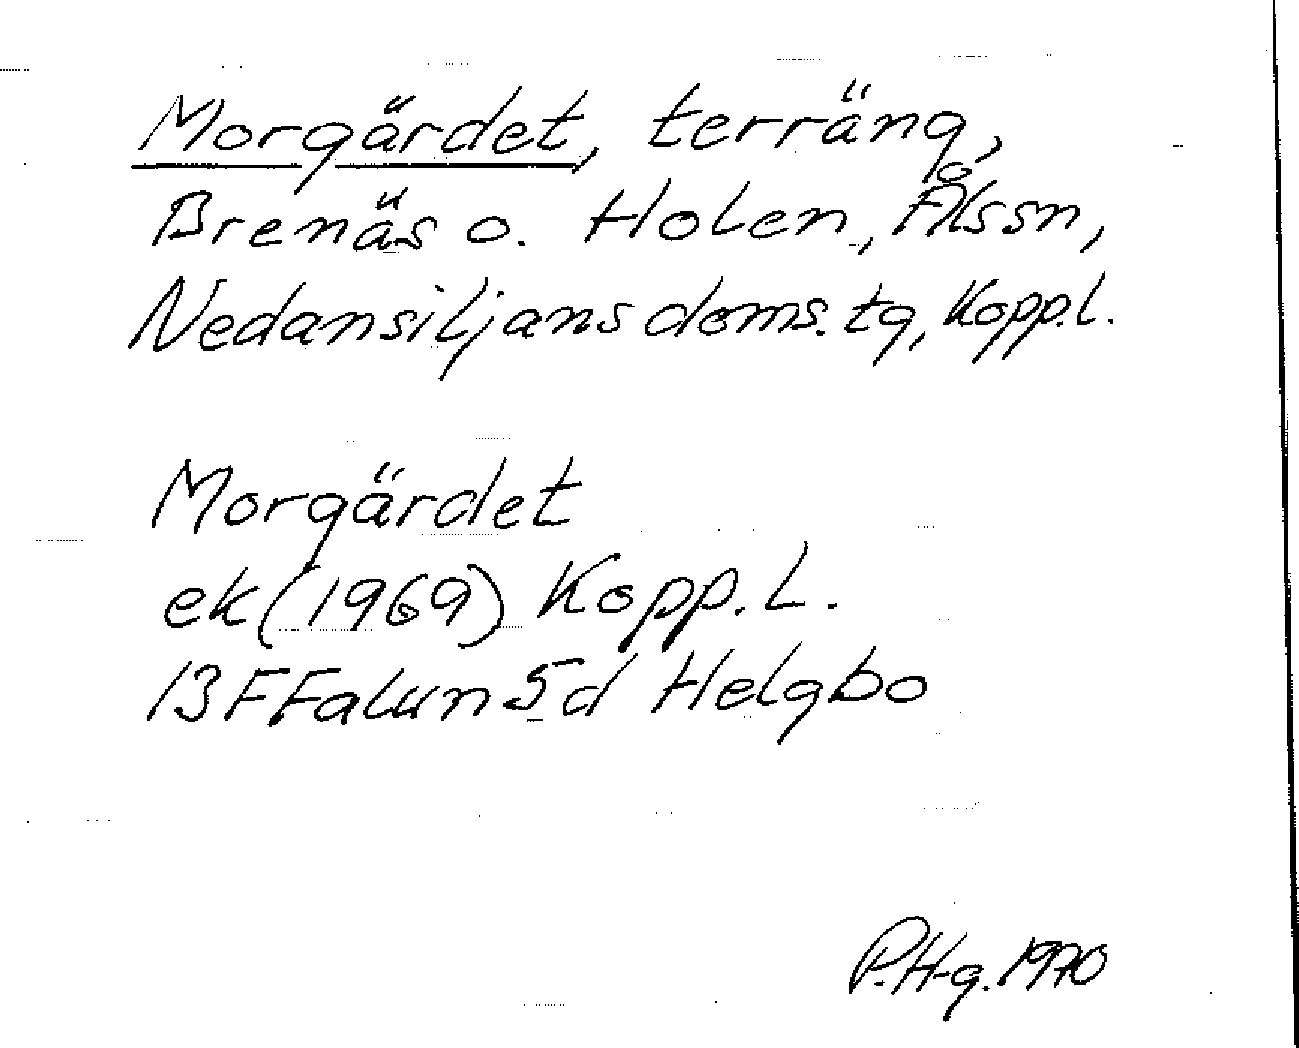 Morgärdet, terräng,
Brenäs o. Holen, Ålssn,
Nedansiljans doms. tg, Kopp.l.
Morgärdet
ek (1969) Kopp. L.
13F Falun 5d Helgbo
P.H-g. 1970